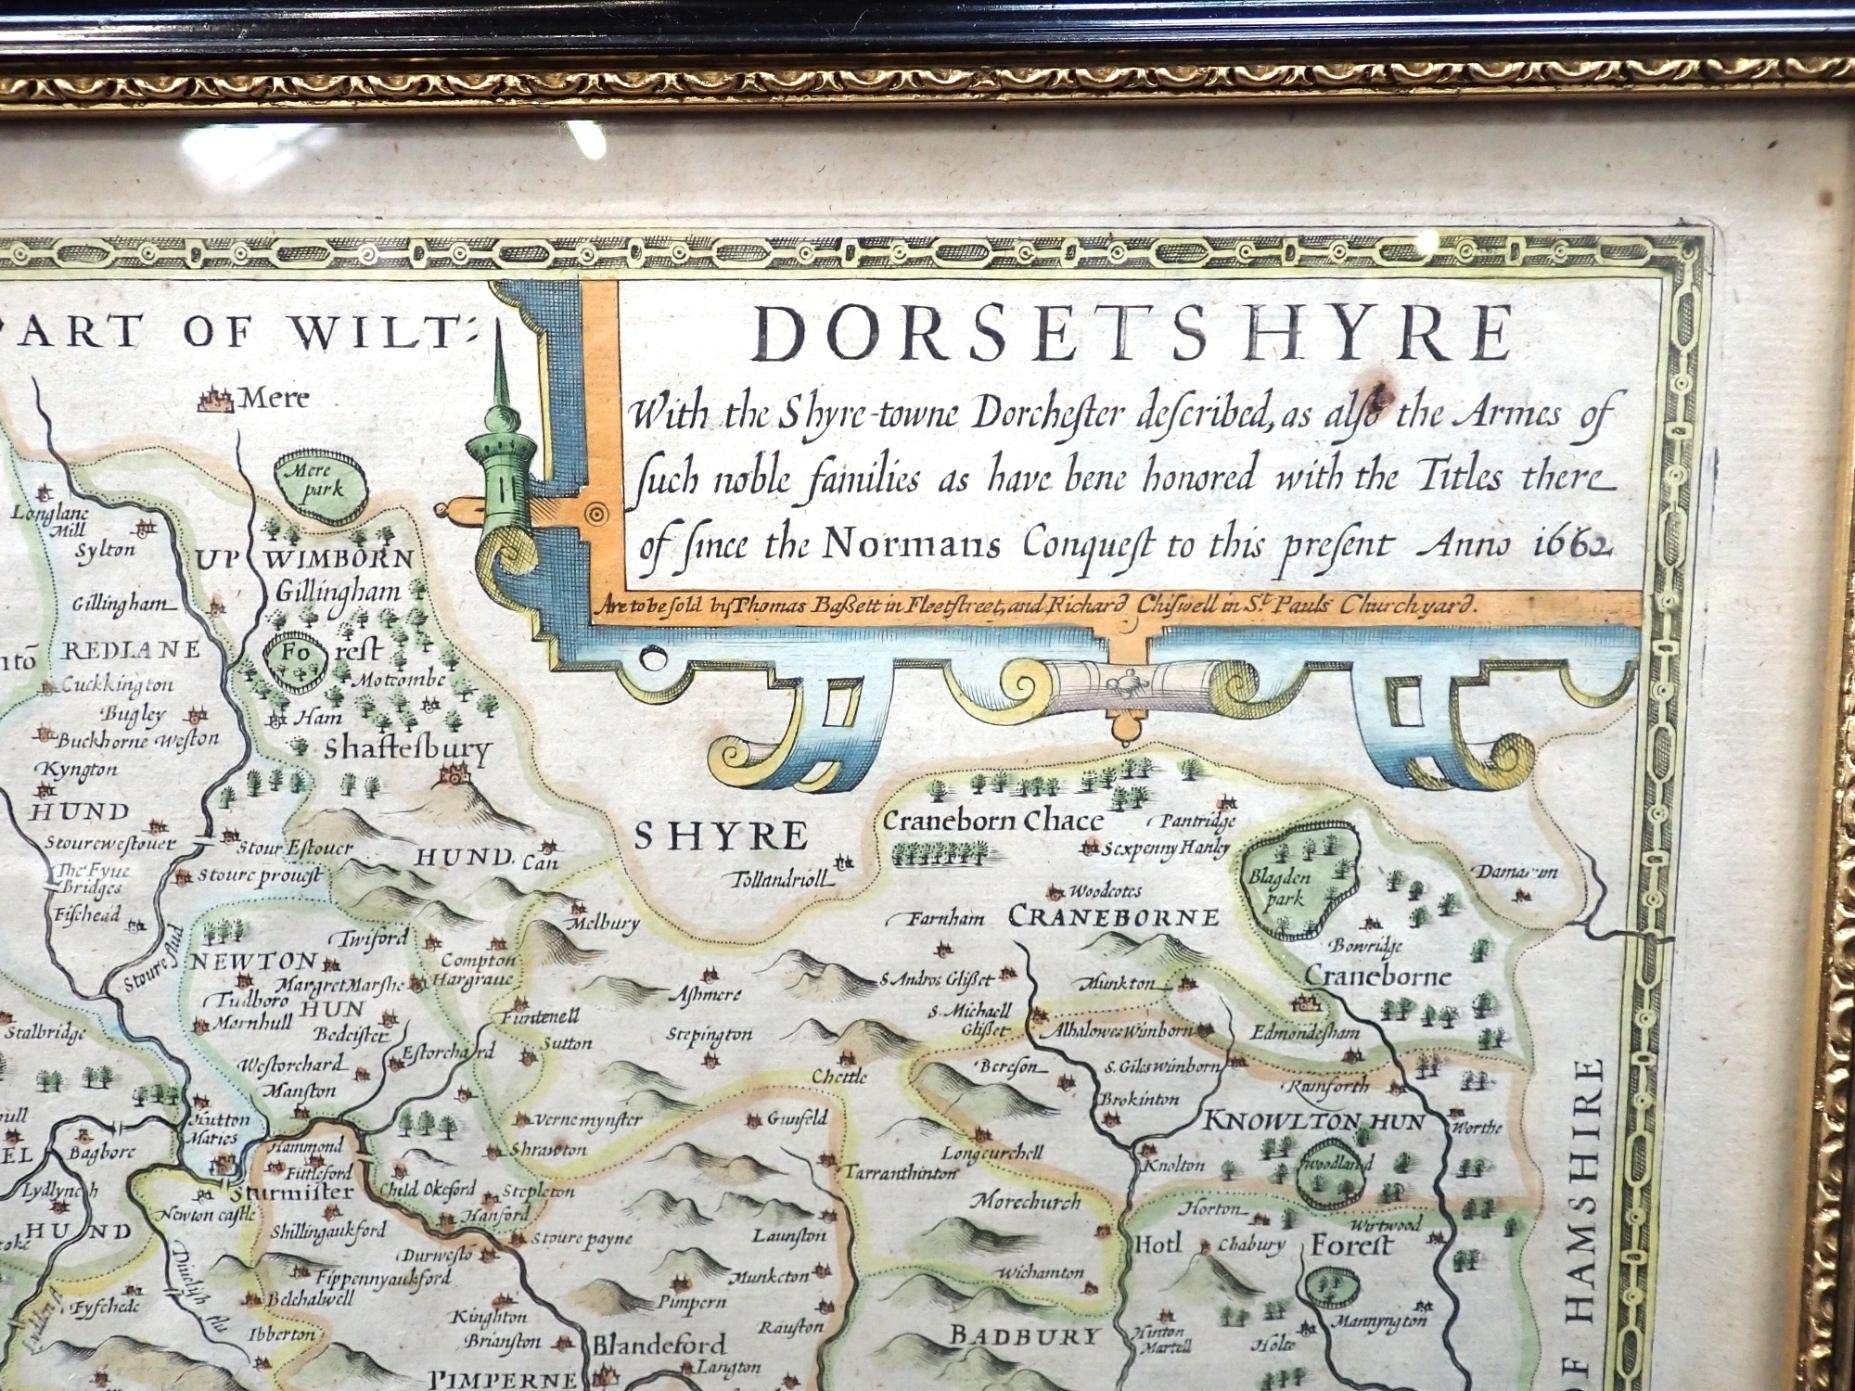 DORSETSHYRE
With the Shyre-towne Dorchester described, as also the Armes of
such noble families as have bene honored with the Titles there
of since the Normans Conquest to this present Anno 1662
Are to be sold by Thomas Baßett in Fleetstreet, and Richard Chiswell in St. Pauls Churchyard.
PART OF WILT
Mere
Mere
park
Longlane
Mill
Sylton
UP WIMBORN
Gillingham
Gillingham
REDLANE
Forest
Cuckkington
Motcombe
Bugley
Ham
Buckhorne Weston
Shaftesbury
Kyngton
HUND
SHYRE
Craneborn Chace
Pantridge
Stourewestouer
Stour Estouer
HUND.
Can
Sexpenny Hanly
The Fyue
Bridges
Stoure prouest
Tollandrioll
Blagden
park
Damarum
Woodcotes
Fifehead
Melbury
Farnham
CRANEBORNE
Stoure flud
Twiford
Bowridge
NEWTON
Compton
Craneborne
Margret Marshe
Hargraue
Ashmere
S Andros Glißet
Munkton
Tudboro
HUN
Funtenell
S. Michaell
Glißet
Marnhull
Bedcister
Alhalowes Wimborn
Edmondesham
Stalbridge
Estorchard
Sutton
Stepington
Westorchard
Chettle
Bereson
S. Giles Wimborn
Manston
Rumforth
Brokinton
Hutton
Maries
Vernemynster
Gunfeld
KNOWLTON HUN
Worthe
Bagbore
Hammond
Shrawton
Longcurchell
Woodland
Futleford
Tarranthinton
Knolton
Lydlynch
Sturmister
Child Okeford
Stepleton
Morechurch
Newton castle
Hanford
Horton
Wirtwood
HUND
Shillingaukford
Stoure payne
Launston
Hotl
Chabury
Forest
Durwesto
Fippennyaukford
Munketon
Wichamton
Fyfehede
Belchalwell
Pimpern
Kinghton
Mannyngton
Ibberton
Brianston
Blandeford
Rauston
BADBURY
Hinton
Martell
Holte
Langton
PIMPERNE
OF HAMSHIRE